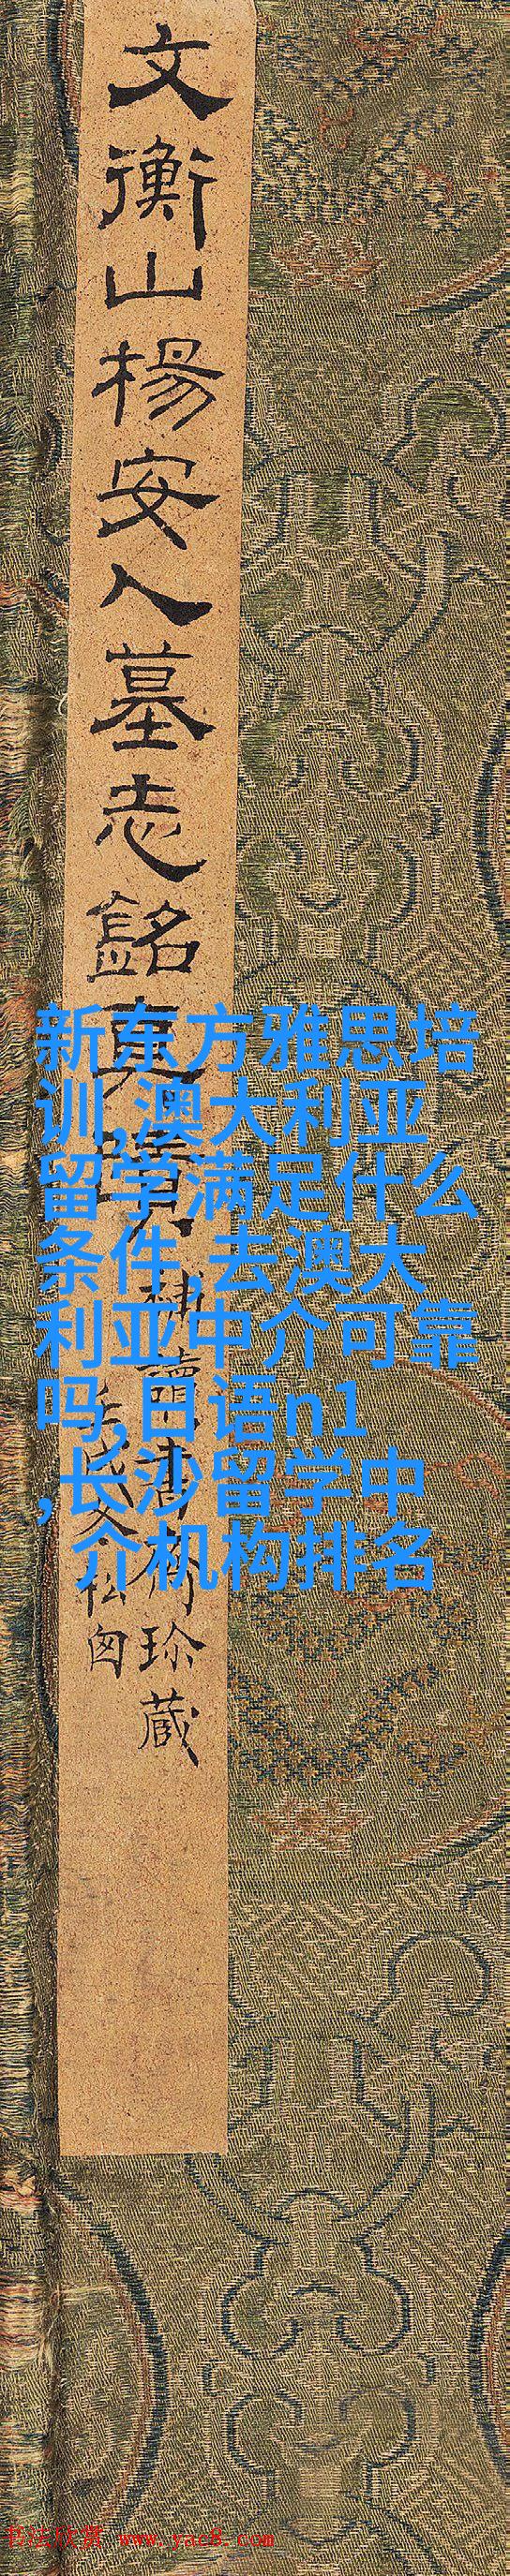 文衡山楊安人墓志銘真蹟
補讀書齋珍蔵
壬戌冬松匋
新东方雅思培
训,澳大利亚
留学满足什么
条件,去澳大
利亚中介可靠
吗,日语n1
,长沙留学中
介机构排名
书法欣赏 www.yac8.com